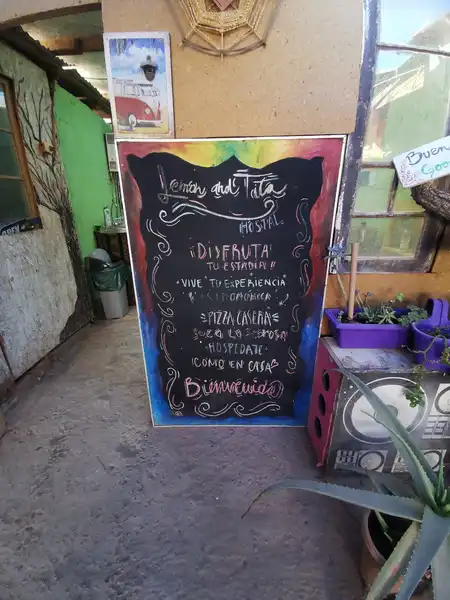 Lemon and Tata
HOSTAL
¡DISFRUTA
TU ESTADIA!!
VIVE TU EXPERIENCIA
GASTRONOMICA
PIZZA CASERA
HOSPEDATE
¡COMO EN CASA
Bienvenido
Buen
Goo